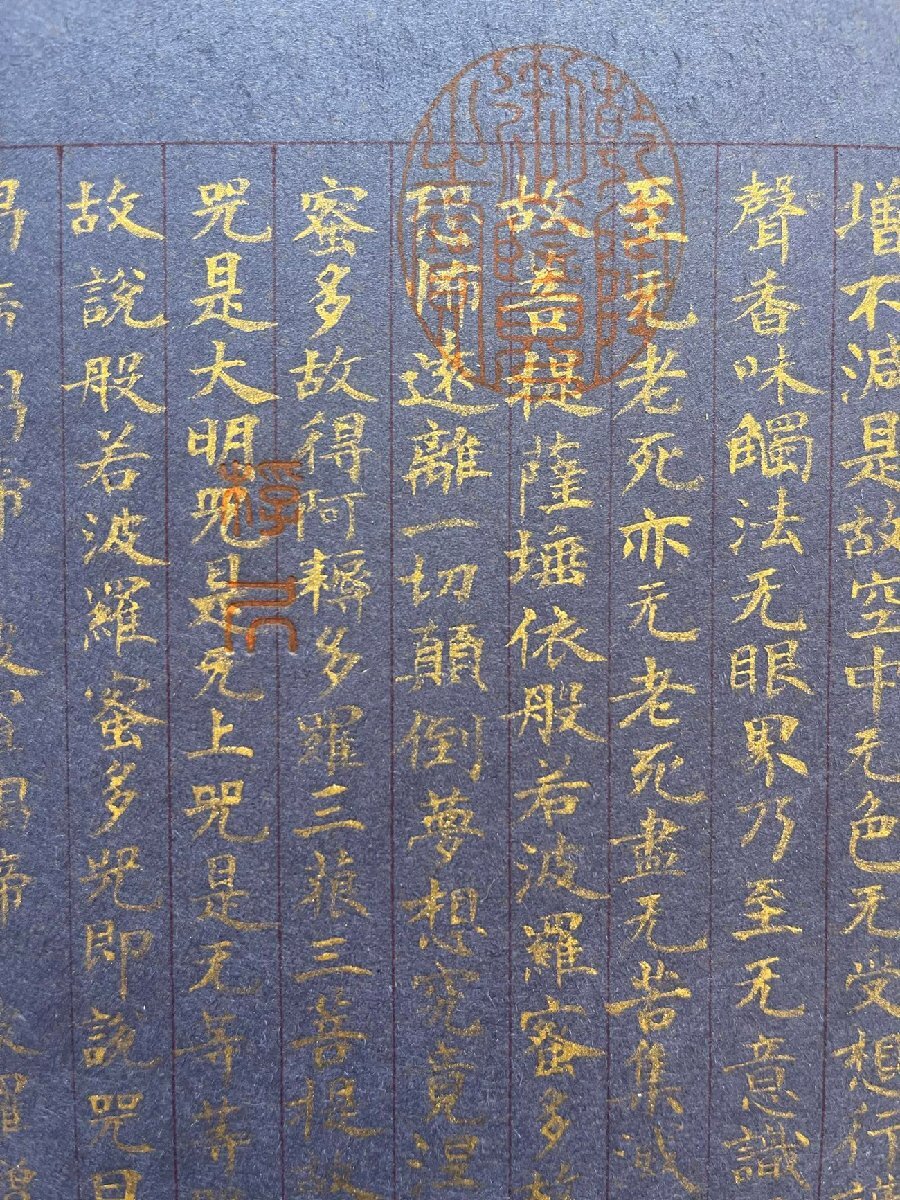 增不減是故空中无色无受想行
聲香味觸法无眼界乃至无意識
至无老死亦无老死盡无苦集滅
故菩提薩埵依般若波羅蜜多故
恐怖遠離一切顛倒夢想究竟涅
蜜多故得阿耨多羅三藐三菩提故
咒是大明咒是无上咒是无等等
故說般若波羅蜜多咒即說咒曰
乾隆
御覽
之寶